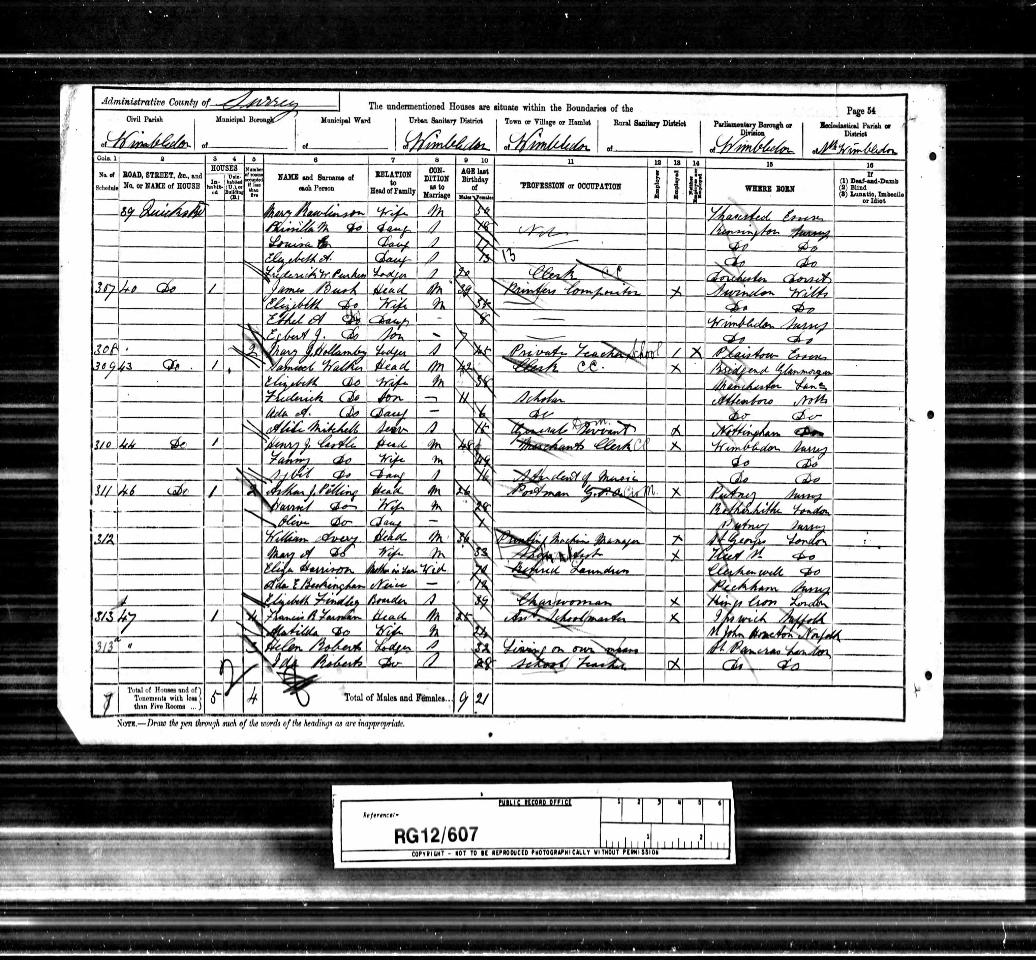 Administrative County of Surrey
The undermentioned Houses are situate within the Boundaries of the
Page 54
Civil Parish
Municipal Borough
Municipal Ward
Urban Sanitary District
Town or Village or Hamlet
Rural Sanitary District
Parliamentary Borough or Division
Ecclesiastical Parish or District
of Wimbledon of of of Wimbledon of Wimbledon of of Wimbledon of Wimbledon
Cols. 1 2 3 4 5 6 7 8 9 10 11 12 13 14 15 16
No. of Schedule
ROAD, STREET, &c., and No. or NAME of HOUSE
HOUSES
Inhabited
NAME and Surname of each Person
RELATION to Head of Family
CONDITION as to Marriage
AGE last Birthday of
Males Females
PROFESSION or OCCUPATION
Employer
Employed
WHERE BORN
If (1) Deaf-and-Dumb (2) Blind (3) Lunatic, Imbecile or Idiot
39 Mary Rawlinson Wife M Thaxted Essex
Do Daug S 18 Kennington Surrey
Louisa Daug S Do Do
Elizabeth A. Daug S 13 13 Do Do
Frederick W. Lodger S 20 Clerk C.C. Dorchester Dorset
307 40 Do 1 James Bush Head M 39 Printers Compositor X Swindon Wilts
Elizabeth Do Wife M Do Do
Ethel A Do Daug - 8 Wimbledon Surrey
Egbert J. Do Son - 7 Do Do
308 " 2 Mary J. Lodger S 45 Private Teacher School X Plaistow Essex
309 43 Do 1 Samuel Walker Head M 42 Clerk C.C. X Bridgend Glamorgan
Elizabeth Do Wife M 38 Manchester Lancs
Frederick Do Son - 11 Scholar Attenboro Notts
Ada A. Do Daug - 6 Do Do Do
Mitchell Serv S 15 General Servant X Nottingham
310 44 Do 1 Henry J. Castle Head M 48 Merchants Clerk X Wimbledon Surrey
Fanny Do Wife M 44 Do Do
Sybil Do Daug S 16 Student of Music Do Do
311 46 Do 1 2 Arthur J. Pilling Head M 26 Postman X Putney Surrey
Harriet Do Wife M 28 Rotherhithe London
Olive Do Daug - 1 Putney Surrey
312 William Avery Head M 36 Printing Machine Manager X St Georges London
Mary A Do Wife M 33 X Do
Eliza Harrison Mother in law Wid 70 Retired Laundress Clerkenwell Do
Ada E Buckingham Niece - 12 Peckham Surrey
Elizabeth Findley Boarder S 39 Charwoman X Kings Cross London
313 47 1 4 Francis R. Head M 25 Ast. Schoolmaster X Ipswich Suffolk
Matilda Do Wife M 24 Norfolk
313a " Helen Roberts Lodger S 32 Living on own means St. Pancras London
Ida Roberts Do S 28 School Teacher X Do Do
7 Total of Houses and of Tenements with less than Five Rooms ... 5 4 Total of Males and Females... 9 21
NOTE.—Draw the pen through such of the words of the headings as are inappropriate.
PUBLIC RECORD OFFICE
Reference:-
RG12/607
1 2 3 4 5 6
1 2
COPYRIGHT - NOT TO BE REPRODUCED PHOTOGRAPHICALLY WITHOUT PERMISSION